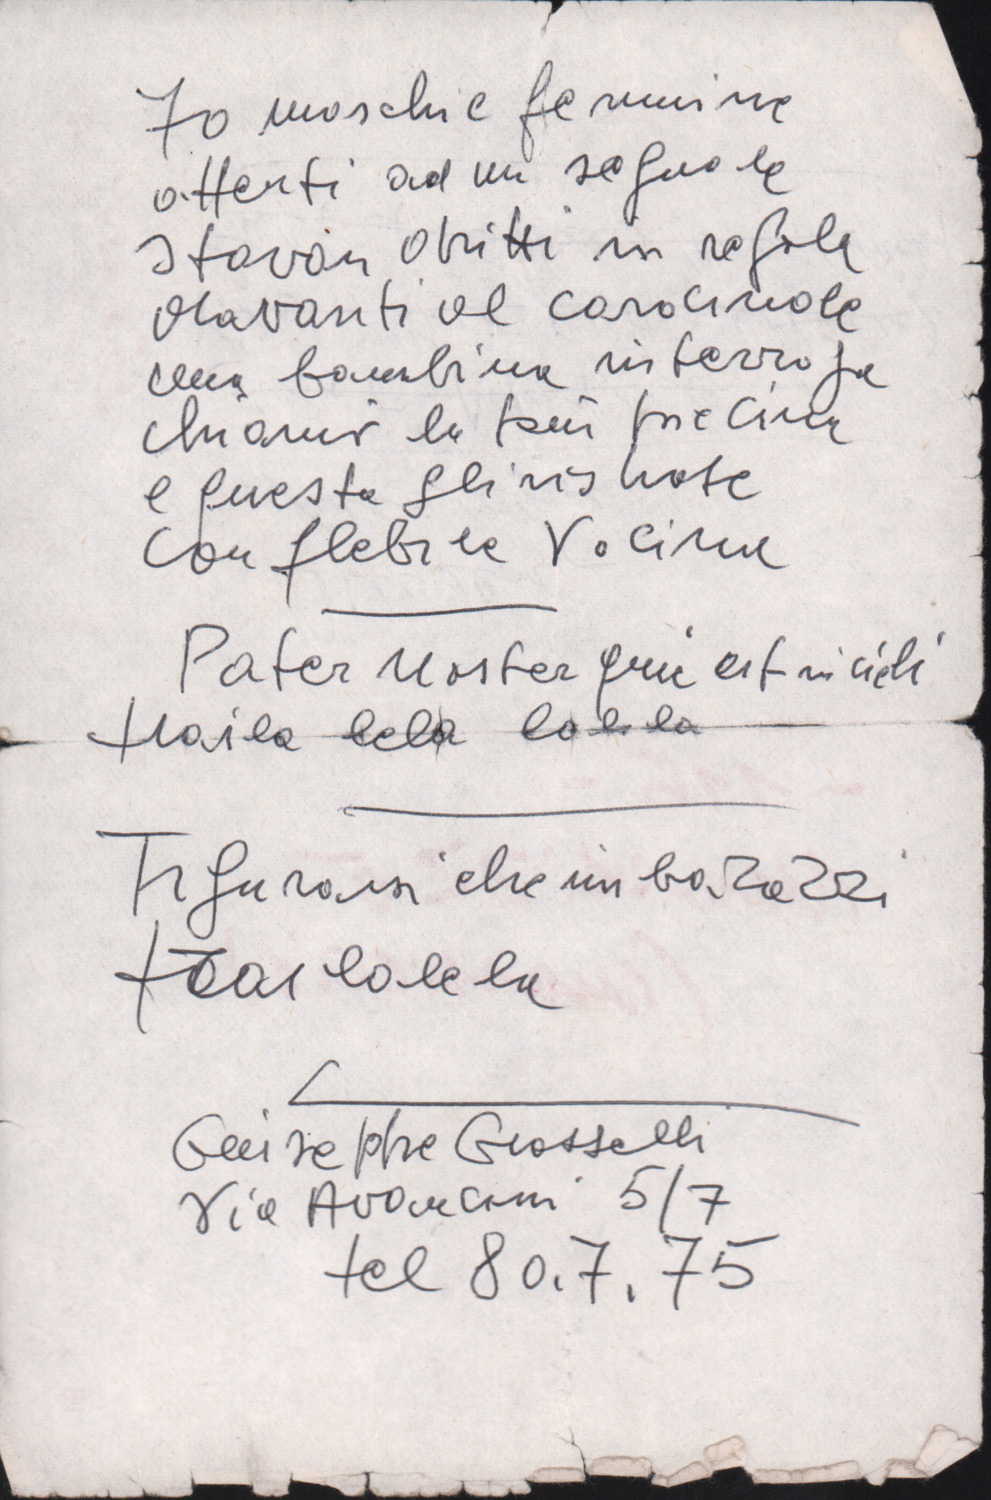 70 maschi e femmine
attenti ad un segnale
stavan dritti in regola
davanti al cardinale
una bambina interroga
chiami la tua piccina
e questa gli rispose
con flebile vocina
Pater noster qui est in cieli
tralla lela lalela
Figurarsi che imbarazzi
lalela
Giuseppe Grosselli
Via Avancini 5/7
tel 80.7.75